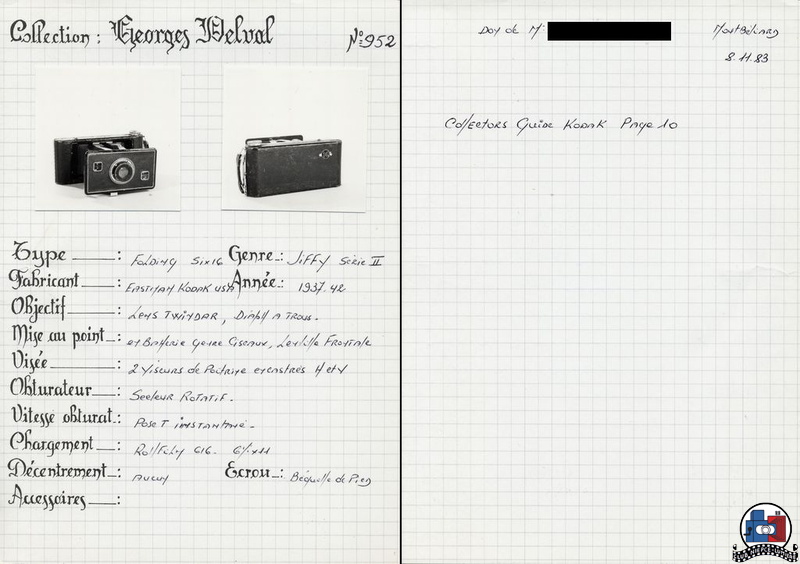 Collection : Georges Delval
N° 952
Type : Folding Six16 Genre : Jiffy Serie II
Fabricant : Eastman Kodak USA Année : 1937.42
Objectif : Lens Twindar, Diaph a trous.
Mise au point : et Batterie genre Ciseaux, Lentille Frontale
Visée : 2 Viseurs de Poitrine encastrés H et V
Obturateur : Secteur Rotatif.
Vitesse obturat. : Pose T instantané.
Chargement : Rollfilm 616. 6½x11
Décentrement : aucun Ecrou : Béquille de Pied
Accessoires :
Don de Mr
Montbéliard
8.11.83
Collectors Guide Kodak Page 10